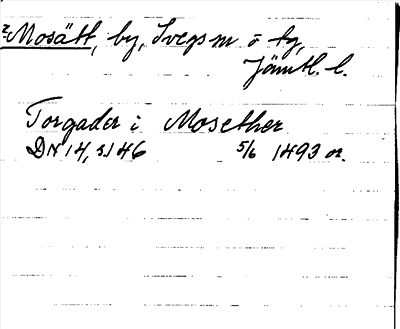 2 Mosätt, by, Svegs m o tg,
Jämtl. l.
Torgader i Mosether
DN 14, s. 146 5/6 1493 or.